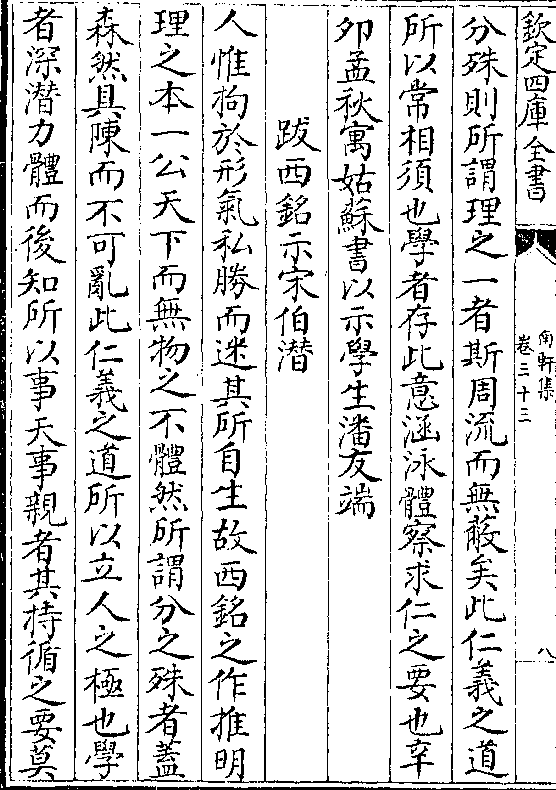 欽定四庫全書
南軒集
卷三十三
八
分殊則所謂理之一者斯周流而無蔽矣此仁義之道
所以常相須也學者存此意涵泳體察求仁之要也辛
夘孟秋寓姑蘇書以示學生潘友端
跋西銘示宋伯潛
人惟拘於形氣私勝而迷其所自生故西銘之作推明
理之本一公天下而無物之不體然所謂分之殊者蓋
森然具陳而不可亂此仁義之道所以立人之極也學
者深潛力體而後知所以事天事親者其持循之要莫